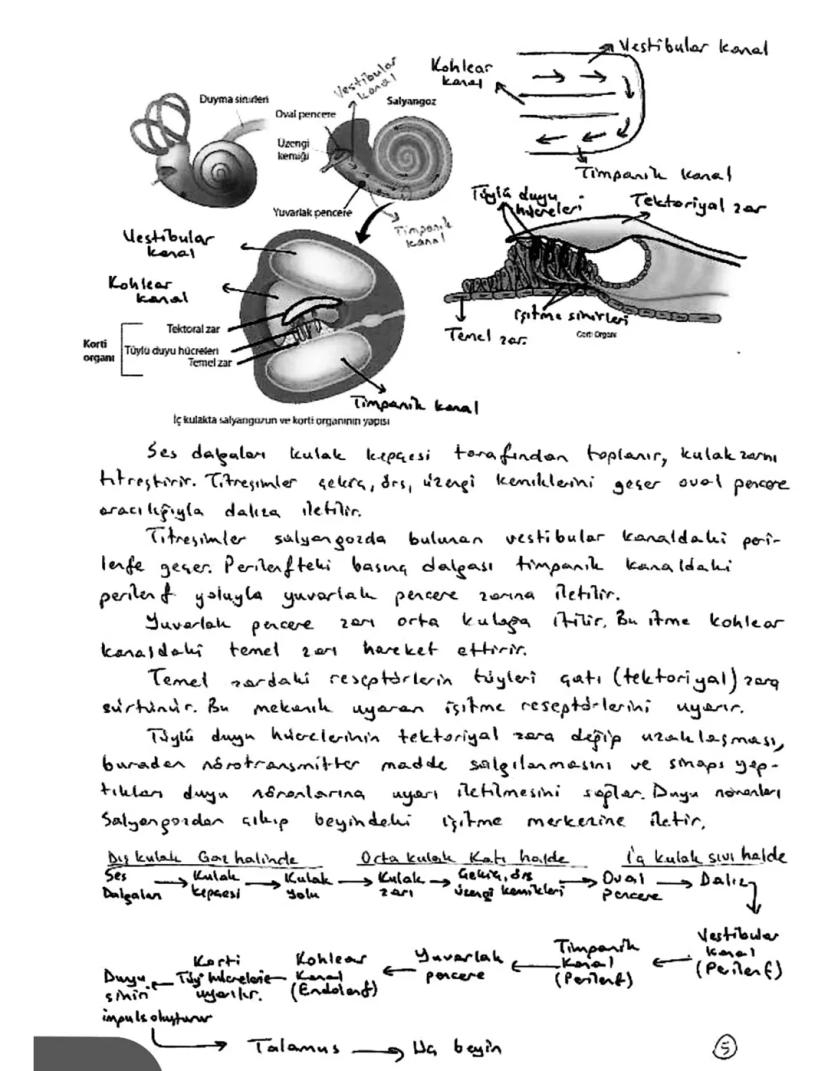 Vestibular kanal
Kohlear kanal
Timpanik kanal
Duyma sinirleri
Vestibular kanal
Oval pencere
Salyangoz
Üzengi kemiği
Yuvarlak pencere
Timpanik kanal
Tüylü duyu hücreleri
Tektoriyal zar
işitme sinirleri
Temel zar
Corti Organı
Vestibular kanal
Kohlear kanal
Tektoral zar
Korti organı
Tüylü duyu hücreleri
Temel zar
Timpanik kanal
İç kulakta salyangozun ve korti organının yapısı
Ses dalgaları kulak kepçesi tarafından toplanır, kulak zarını
titreştirir. Titreşimler çekiç, örs, üzengi kemiklerini geçer oval pencere
aracılığıyla dalıza iletilir.
Titreşimler salyangozda bulunan vestibular kanaldaki peri-
lenfe geçer. Perilenfteki basınç dalgası timpanik kanaldaki
perilenf yoluyla yuvarlak pencere zarına iletilir.
Yuvarlak pencere zarı orta kulağa itilir. Bu itme kohlear
kanaldaki temel zarı hareket ettirir.
Temel zardaki reseptörlerin tüyleri çatı (tektoriyal) zara
sürtünür. Bu mekanik uyaran işitme reseptörlerini uyarır.
Tüylü duyu hücrelerinin tektoriyal zara değip uzaklaşması,
buradan nörotransmitter madde salgılanmasını ve sinaps yap-
tıkları duyu nöronlarına uyarı iletilmesini sağlar. Duyu nöronları
Salyangozdan çıkıp beyindeki işitme merkezine iletir.
Dış kulak Gaz halinde Orta kulak Katı halde İç kulak sıvı halde
Ses Dalgaları → Kulak kepçesi → Kulak yolu → Kulak zarı → Çekiç, örs üzengi kemikleri → Oval pencere → Dalız
Vestibular kanal (Perilenf)
Duyu sinir impuls oluşturur ← Korti Tüy hücreleri uyarılır. ← Kohlear Kanal (Endolenf) ← Yuvarlak pencere ← Timpanik Kanal (Perilenf) ←
→ Talamus → Uç beyin
5